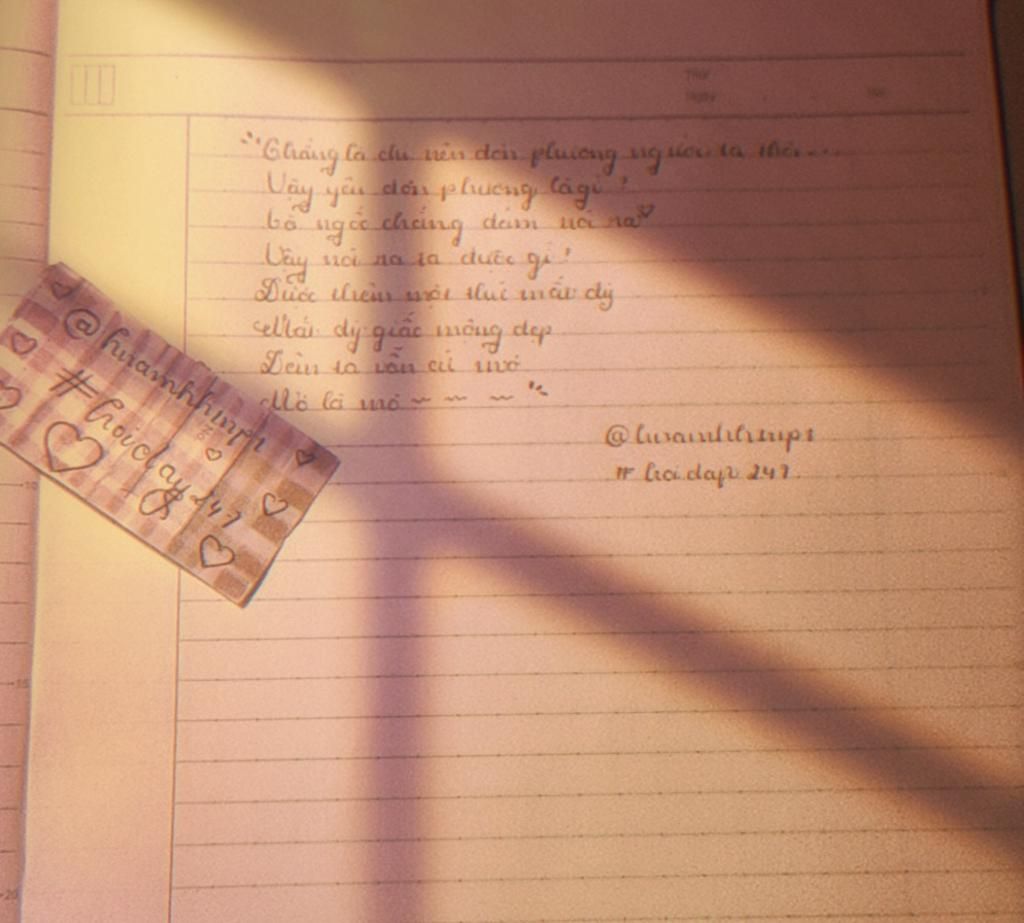 Thứ
Ngày
No.
"Chẳng là chi nên đơn phương người ta thôi...
Vậy yêu đơn phương là gì?
Cô ngốc chẳng dám nói ra♡
Vậy nói ra ta được gì?
Được thêm một thứ mất đy
Mất đy giấc mộng đẹp
Đêm ta vẫn cứ mơ
Mơ là mơ ~ ~ ~"
@luramhhmp1
# hoidap247
@luramhhmp1
# hoidap 247